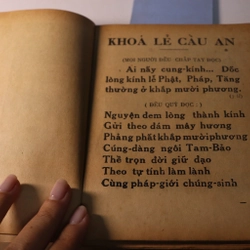 KHOÁ LỄ CẦU AN
(MỌI NGƯỜI ĐỀU CHẮP TAY ĐỌC)
Ai nấy cung-kính... Dốc
lòng kính lễ Phật, Pháp, Tăng
thường ở khắp mười phương.
( ĐỀU QUỲ ĐỌC )
Nguyện đem lòng thành kính
Gửi theo đám mây hương
Phảng phất khắp mười phương
Cúng-dàng ngôi Tam-Bảo
Thề trọn đời giữ đạo
Theo tự tính làm lành
Cùng pháp-giới chúng-sinh